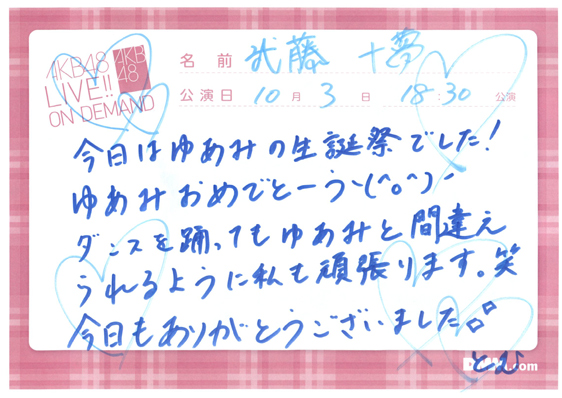 AKB48
LIVE!!
ON DEMAND
AKB
48
名前 武藤 十夢
公演日 10月 3日 18:30 公演
今日はゆあみの生誕祭でした！
ゆあみおめでとーう丶(^o^)ノ
ダンスを踊ってもゆあみと間違え
られるように私も頑張ります。笑
今日もありがとうございました。
とむ
.com